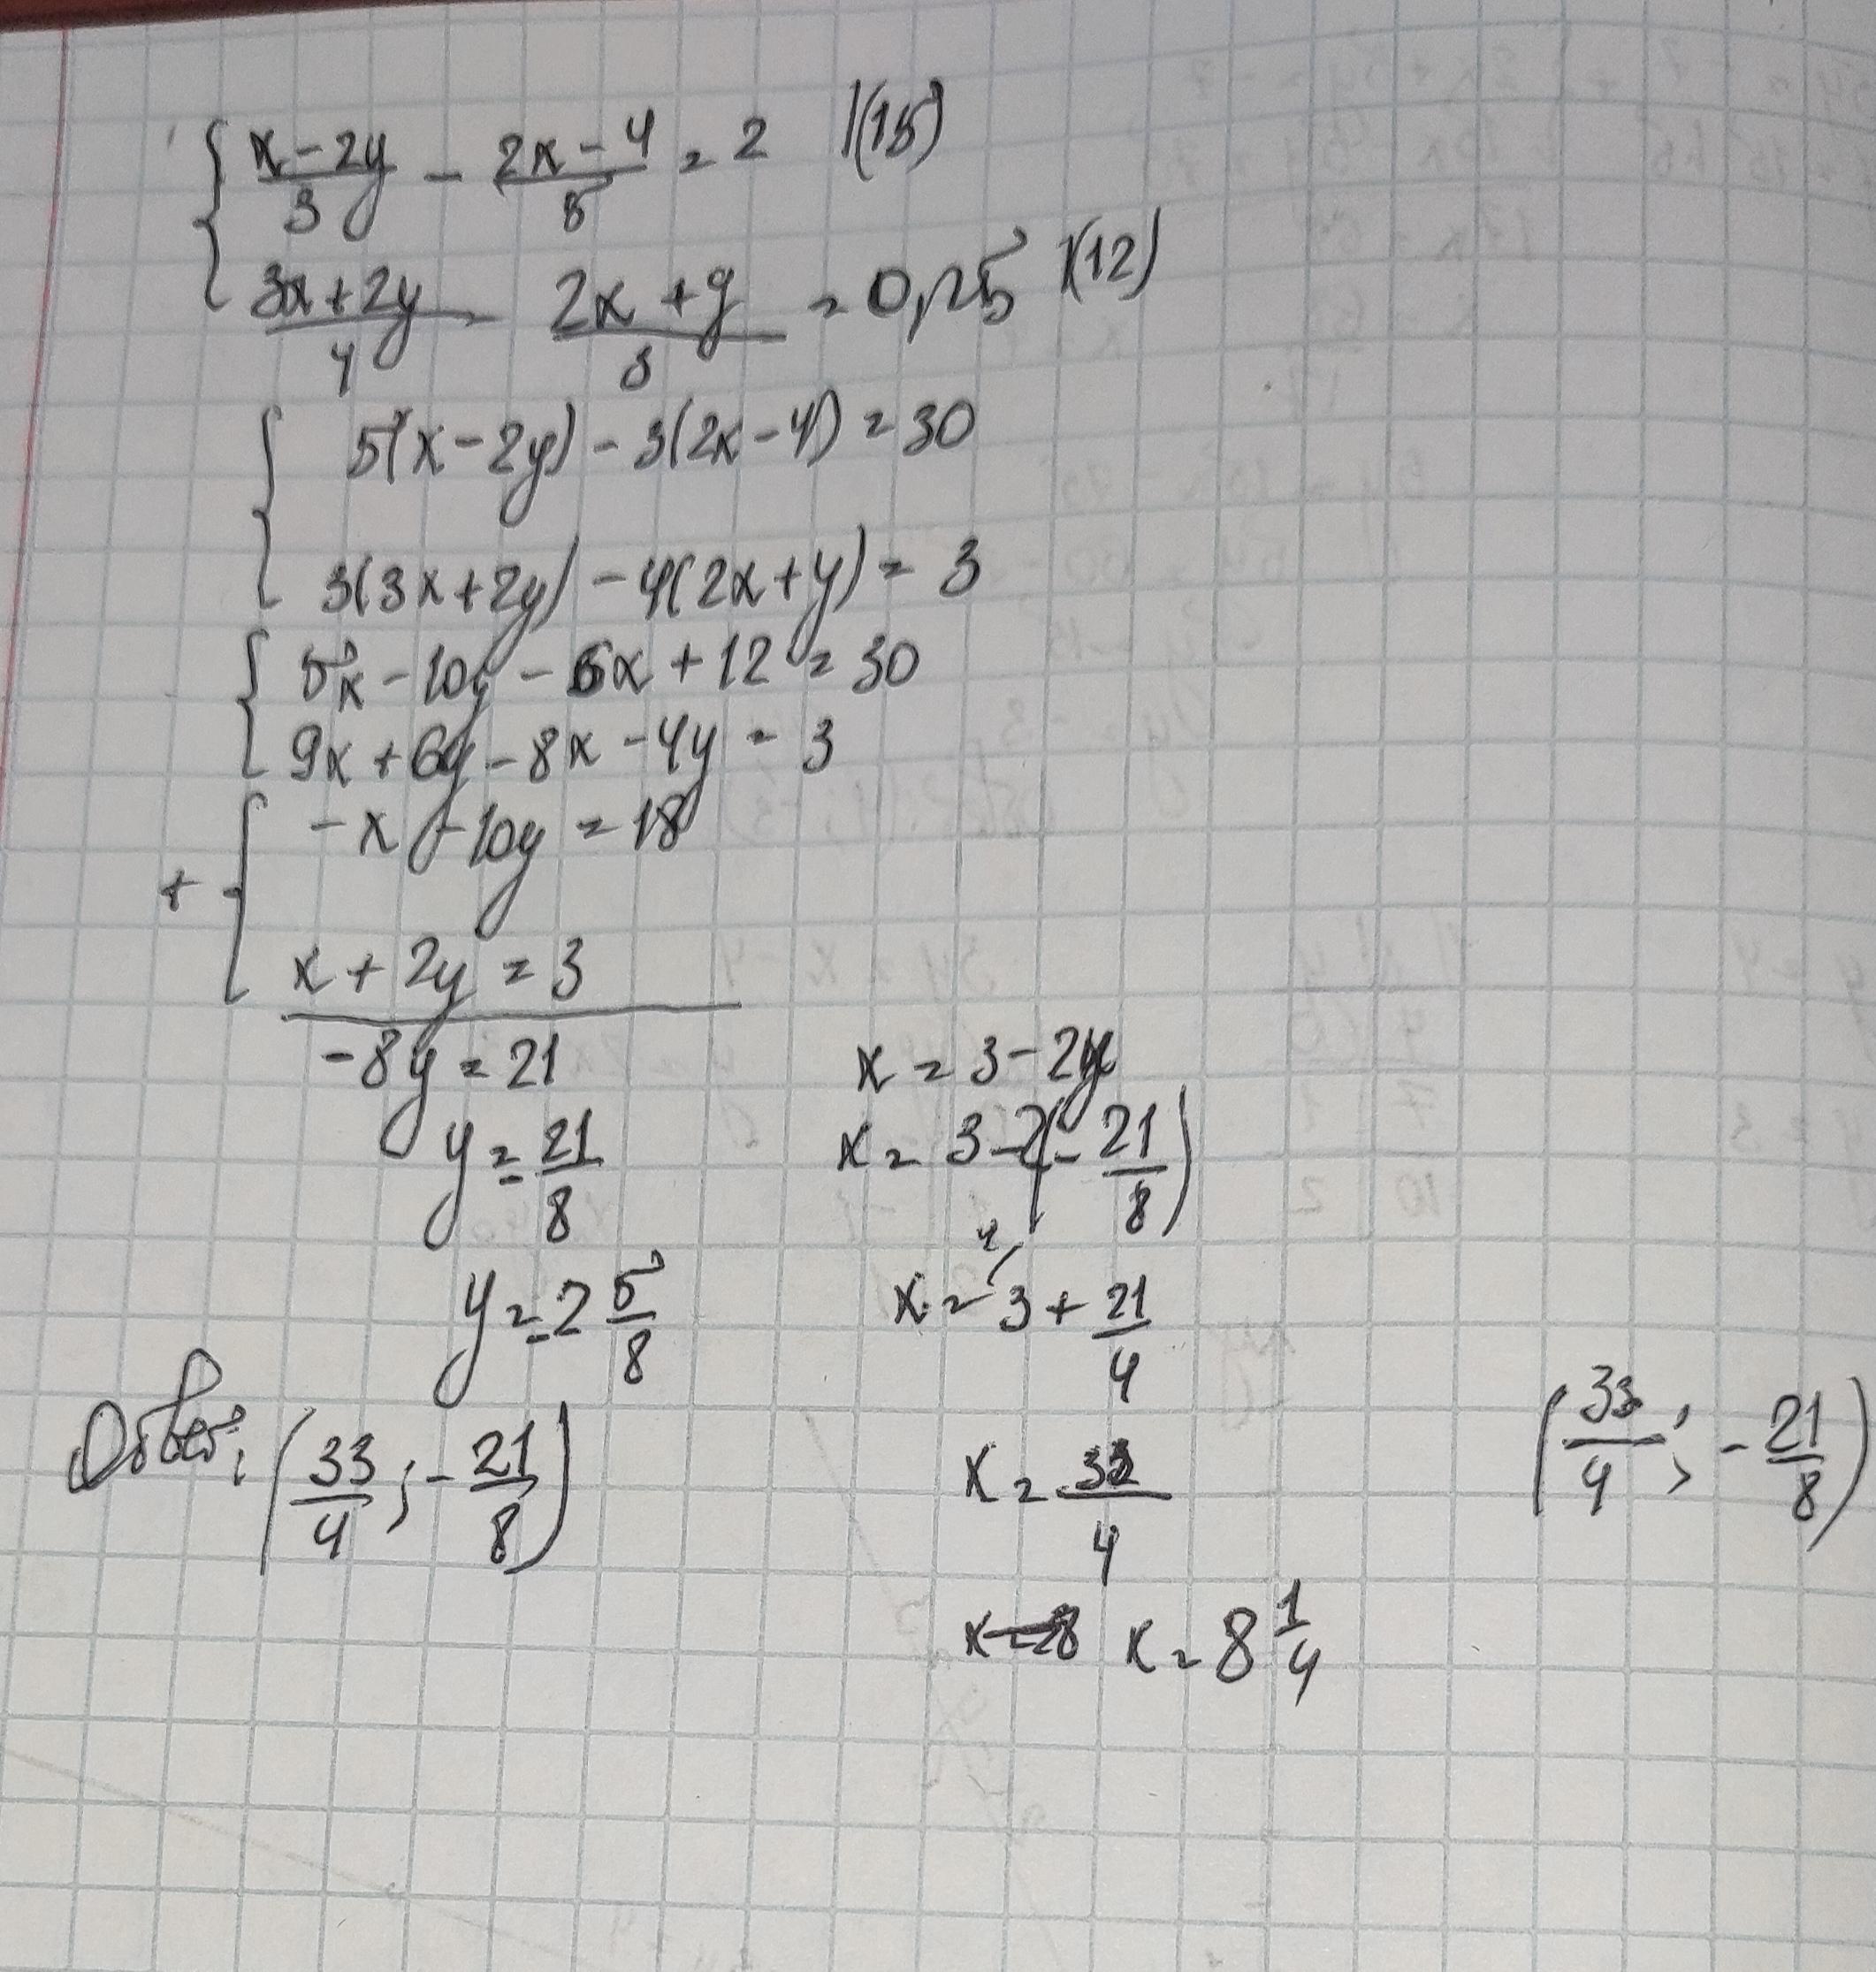 { (x-2y)/3 - (2x-4)/5 = 2 |(15)
(3x+2y)/4 - (2x+y)/3 = 0,25 |(12)
{ 5(x-2y) - 3(2x-4) = 30
3(3x+2y) - 4(2x+y) = 3
{ 5x - 10y - 6x + 12 = 30
9x + 6y - 8x - 4y = 3
+ { -x - 10y = 18
x + 2y = 3
-8y = 21
y = -21/8
y = -2 5/8
x = 3 - 2y
x = 3 - 2(-21/8)
x = 3 + 21/4
x = 33/4
x = 8 1/4
Ответ: (33/4; -21/8)
(33/4; -21/8)